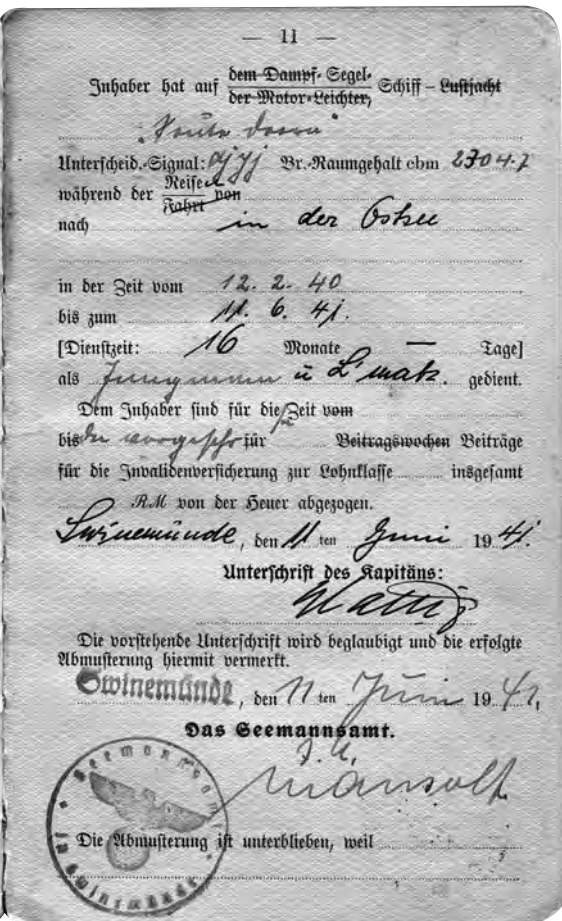 — 11 —
Inhaber hat auf dem Dampf- Segel- Schiff – Lustjacht
der Motor-Leichter,
Unterscheid.-Signal: Br.-Raumgehalt cbm 2704.7
während der Reisen von
Fahrt
nach in der Ostsee
in der Zeit vom 12. 2. 40
bis zum 11. 6. 41.
[Dienstzeit: 16 Monate — Tage]
als Jungmann u. L'mätr. gedient.
Dem Inhaber sind für die Zeit vom
bis für Beitragswochen Beiträge
für die Invalidenversicherung zur Lohnklasse insgesamt
RM von der Heuer abgezogen.
Swinemünde, den 11 ten Juni 1941.
Unterschrift des Kapitäns:
Die vorstehende Unterschrift wird beglaubigt und die erfolgte
Abmusterung hiermit vermerkt.
Swinemünde, den 11 ten Juni 1941,
Das Seemannsamt.
J. A.
Seemannsamt
in Swinemünde
Die Abmusterung ist unterblieben, weil